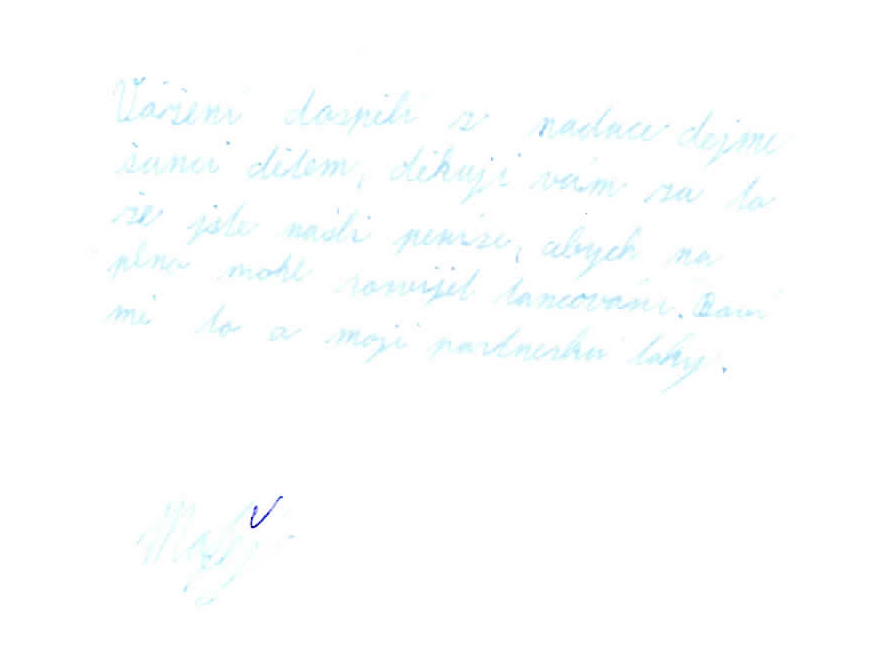 Vážení dospělí z nadace dejme
šanci dětem, děkuji vám za to
že jste našli peníze, abych na
plno mohl rozvíjet tancování. Baví
mě to a moji partnerku taky.